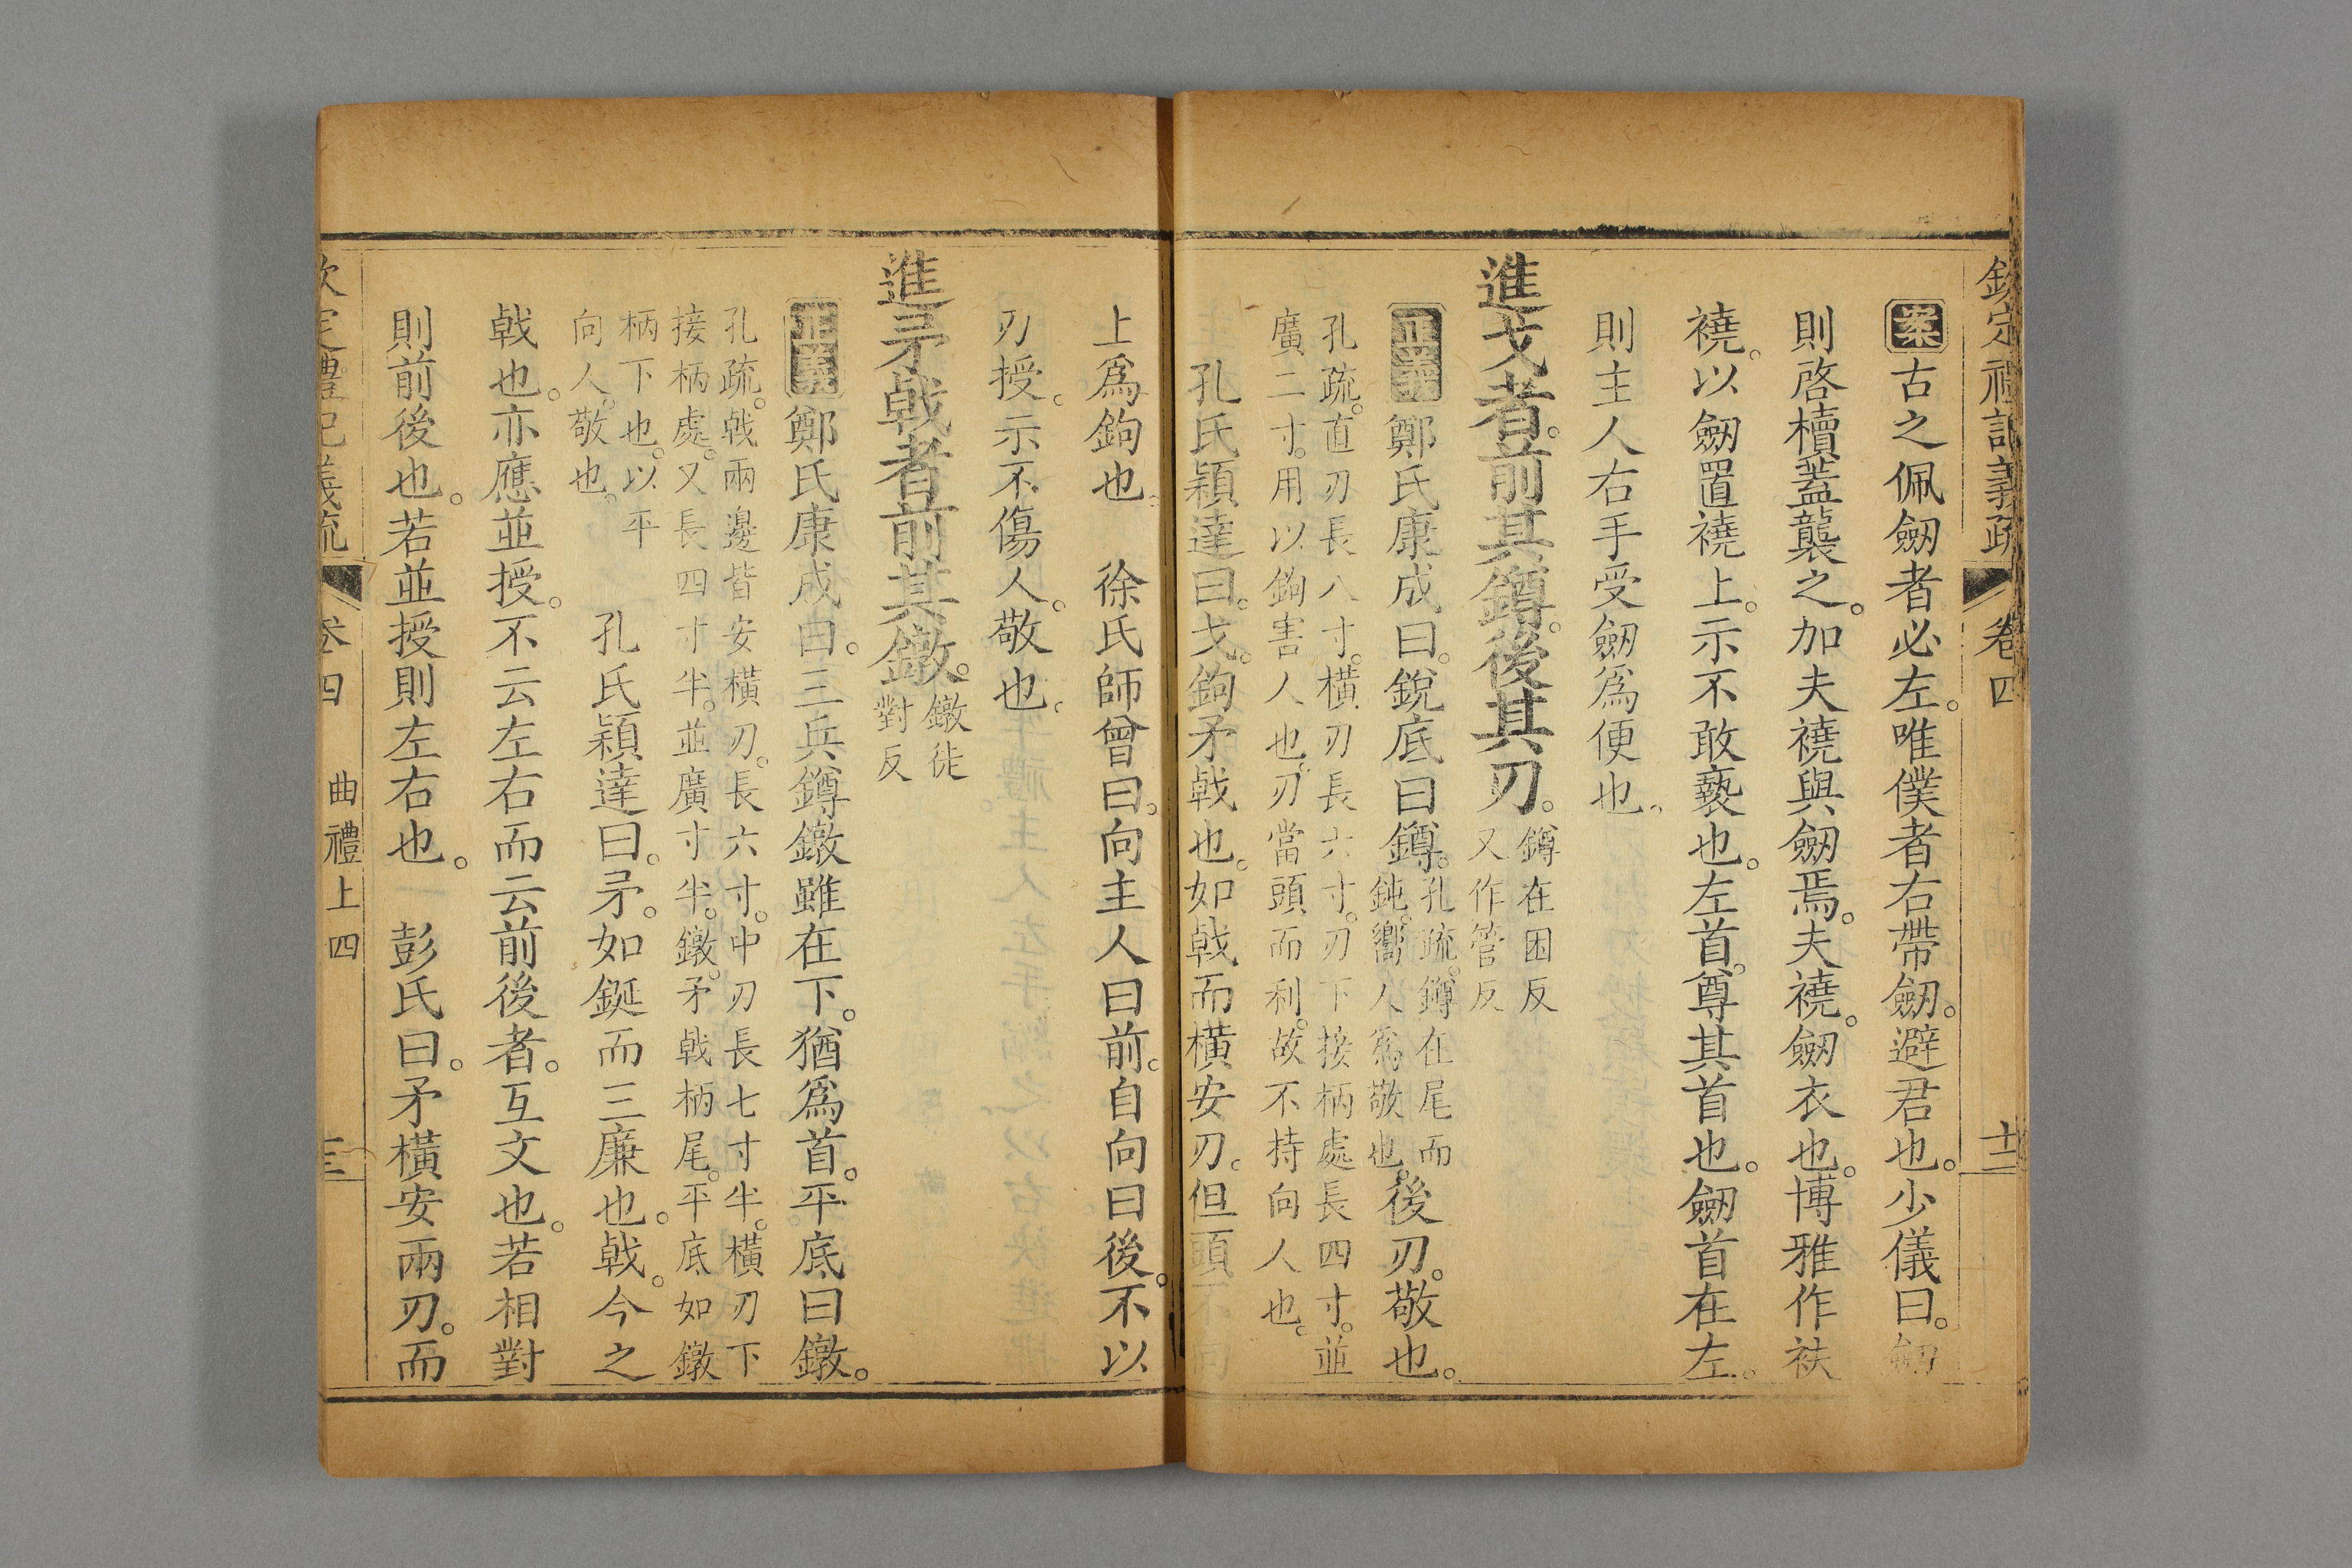 欽定禮記義疏 卷四 十二
案古之佩劒者必左。唯僕者右帶劒。避君也。少儀曰。劒
則啓櫝蓋襲之。加夫襓與劒焉。夫襓。劒衣也。博雅作袪
襓。以劒置襓上。示不敢褻也。左首。尊其首也。劒首在左。
則主人右手受劒爲便也。
進戈者。前其鐏。後其刃。鐏在困反
又作管反
正義鄭氏康成曰。銳底曰鐏。孔疏。鐏在尾而
鈍。嚮人爲敬也。後刃。敬也。
孔疏。直刃長八寸。橫刃長六寸。刃下接柄處長四寸。並
廣二寸。用以鉤害人也。刃當頭而利。故不持向人也。
孔氏穎達曰。戈。鉤矛戟也。如戟而橫安刃。但頭不向
上爲鉤也 徐氏師曾曰。向主人曰前。自向曰後。不以
刃授。示不傷人。敬也。
進矛戟者前其鐓。鐓徒
對反
正義鄭氏康成曰。三兵鐏鐓雖在下。猶爲首。平底曰鐓。
孔疏。戟兩邊皆安橫刃。長六寸。中刃長七寸半。橫刃下
接柄處。又長四寸半。並廣寸半。鐓。矛戟柄尾。平底如鐓
柄下也。以平
向人。敬也。
孔氏穎達曰。矛。如鋋而三廉也。戟。今之
戟也。亦應並授。不云左右而云前後者。互文也。若相對
則前後也。若並授則左右也。 彭氏曰。矛橫安兩刃。而
欽定禮記義疏 卷四 曲禮上四